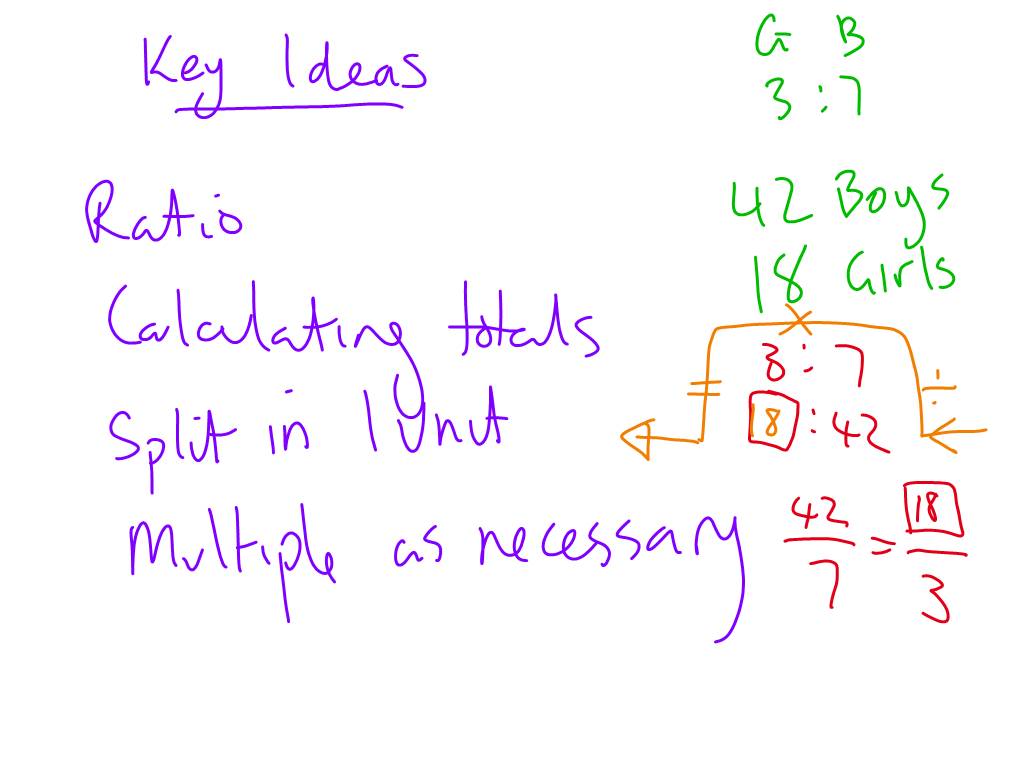 Key Ideas
Ratio
Calculating totals
Split in 1 Unit
Multiple as necessary
G B
3 : 7
42 Boys
18 Girls
×
3 : 7
= ÷
18 : 42
42/7 = 18/3